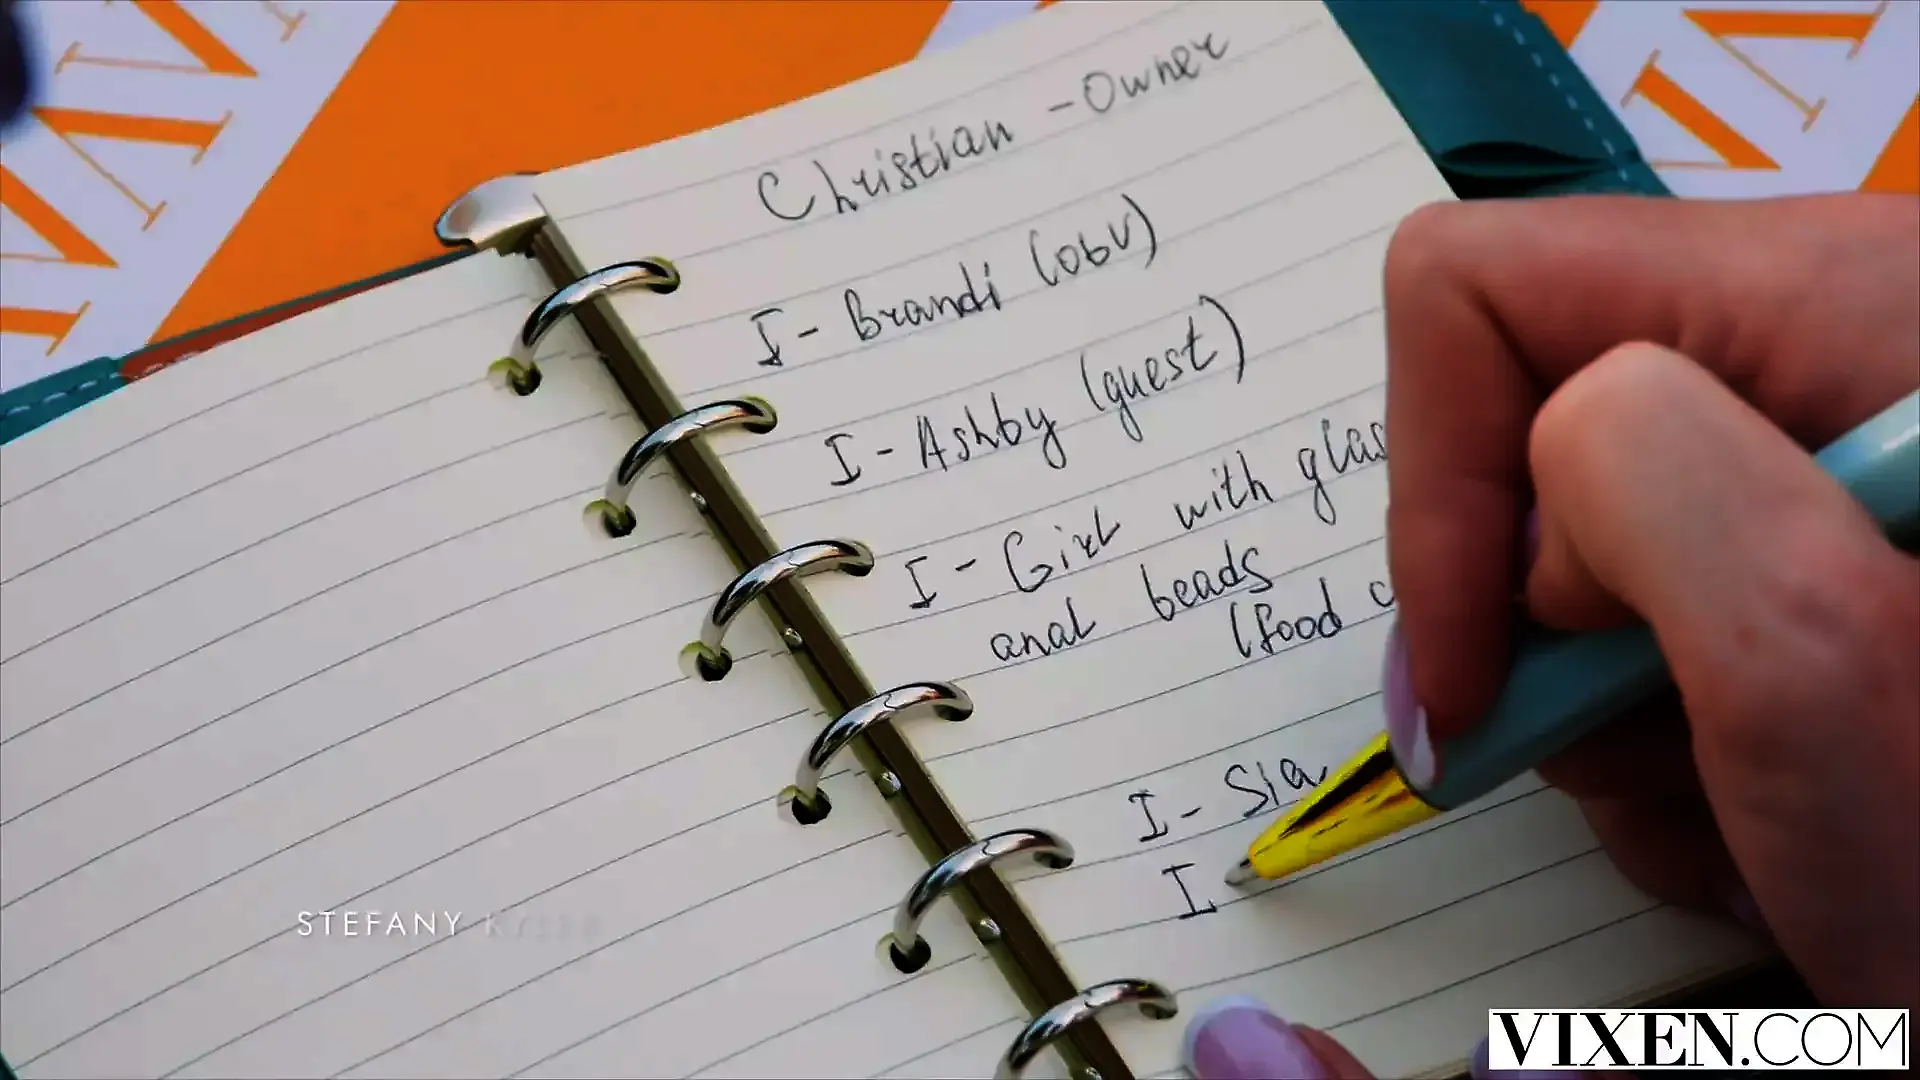 Christian - Owner
I - Brandi (obv)
I - Ashby (guest)
I - Girl with
anal beads
(food
I - Sia
I
STEFANY
VIXEN.COM